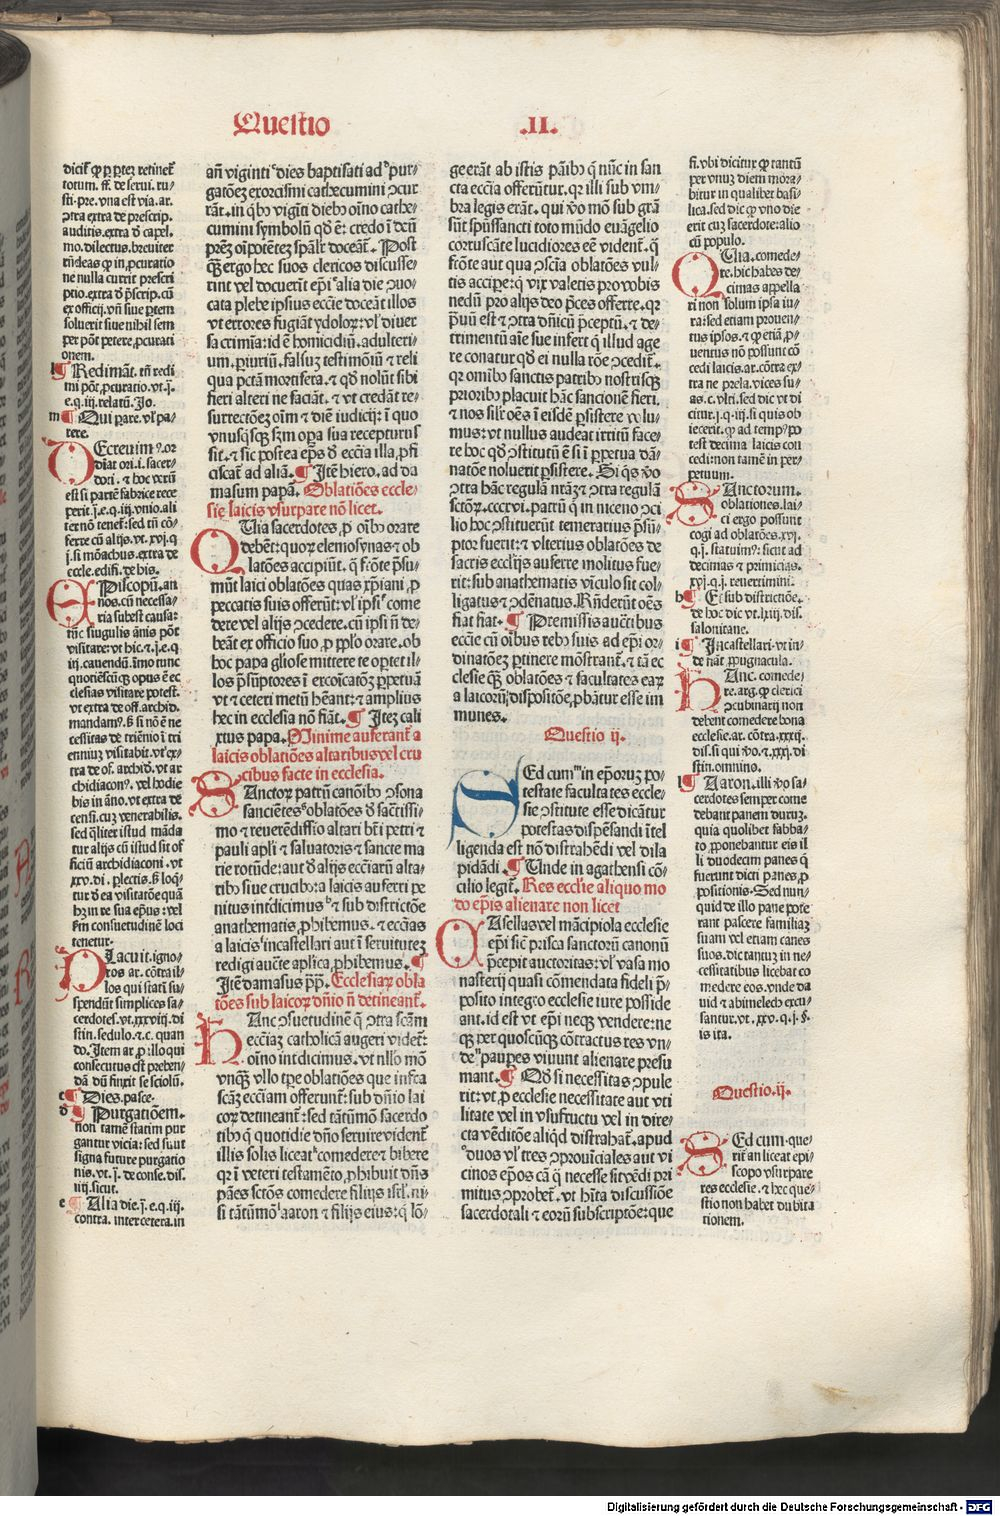 Questio .II.
dicit᷒ ꝙ ꝑ ꝑtez retinet᷒
totum. ff. de serui. ru⸗
sti. pre. vna est via. ar.
ꝯtra extra de prescrip.
auditis. extra d̄ capel.
mo. dilectus. breuiter
rn̄deas ꝙ in ꝓcuratio
ne nulla currit prescri
ptio. extra d̄ p̄scrip. cū
ex officij. vn̄ siue ꝑtem
soluerit siue nihil sem
per pōt petere ꝓcurati
onem.
l ¶ Redimāt. tn̄ redi
mi pōt ꝓcuratio. vt. j̄.
e. q. iij. relatū. Jo.
m ¶ Qui ꝑare. vl̓ pa⸗
rere.
DEcreuim⁹. or
dīat ori. i. sacer⸗
dori. ⁊ hoc verū
est si partē fabrice rece
perit. j̄. e. q. iij. vnio. ali
ter nō tenet᷒: sed tn̄ cō⸗
ferre cū alijs. vt. xvj. q
j. si monachus. extra de
eccle. edifi. de his.
EPiscopū. an
nos. cū necessa⸗
ria subest causa:
tūc singulis ānis pōt
visitare: vt hic. ⁊. j̄. e. q
iij. cauendū. īmo tunc
quotiēscūqꝫ opus ē ec
clesias visitare potest.
vt extra de off. archid.
mandam⁹. ß si nō ē ne
cessitas de triēnio ī tri
enniuz visitabit. vt ex⸗
tra de of. archid. vt ar
chidiacon⁹. vel hodie
bis in āno. vt extra de
censi. cuz venerabilis.
sed qͣliter istud māda
tur alijs cū istud sit of
ficiū archidiaconi. vt
xxv. di. ꝑlectis. ß loq̄⸗
tur d̄ ea visitatōe quā
hꝫ in re sua ep̄us: vel
ẜm consuetudinē loci
tenetur.
PLacuit. igno⸗
tos ar. cōtra il⸗
los qui statī su⸗
spendūt simplices sa⸗
cerdotes. vt. xxxviij. di
stin. sedulo. ⁊. c. quan
do. Jtem ar ꝓ: illo qui
consecutus est preben⸗
dā dū finxit se sciolū.
c ¶ Dies. pasce.
d ¶ Purgatiōem.
non tamē statim pur
gantur vicia: sed sunt
signa future purgatio
nis. vt. j̄. de conse. dis.
iiij. sicut.
e ¶ Alia die. j̄. e. q. iij.
contra. inter cetera. in
añ viginti dies baptisati ad pur⸗
gatōez exorcismi cathecumini ꝯcur
rāt. in qͥbꝰ vigīti diebꝰ oīno cathe⸗
cumini symbolū qd̓ ē: credo ī deū
prēz oīpotētez spāl̓r doceāt. Post
qͣꝫ ergo hec suos clericos discusse⸗
rint vel docuerit ep̄i alia die ꝯuo⸗
cata plebe ipsius eccīe doceāt illos
vt errores fugiāt ydolorꝫ: vl̓ diuer
sa crimīa: id ē homicidiū. adulteri⸗
um. ꝑiuriū. falsuz testimōiū ⁊ reli
qua pctā mortifera. ⁊ qd̓ nolūt sibi
fieri alteri ne faciāt. ⁊ vt credāt re⸗
surrectōez oīm ⁊ diē iudicij: ī quo
vnusqͥsqꝫ ẜm oꝑa sua recepturus
sit. ⁊ sic postea ep̄s d̄ eccīa illa ꝓfi
ciscat᷒ ad aliā. ¶ Jtē hiero. ad da
masum papā. Oblatiōes eccle⸗
sie laicis vsurpare nō licet.
QUia sacerdotes ꝓ oībꝰ orare
debēt: quoꝝ elemosynas ⁊ ob
latōes accipiūt. q̄ frōte p̄su⸗
mūt laici oblatōes quas xp̄iani ꝓ
peccatis suis offerūt: vl̓ ipsi come
dere vel alijs ꝯcedere. cū ipsi nō de⸗
beāt ex officio suo ꝓ ppl̓o orare. ob
hoc papa gl̓iose mittere te oꝑtet il⸗
los p̄suptores ī excoīcatōꝫ ꝑpetuā
vt ⁊ ceteri metū heāt: ⁊ amplius
hec in ecclesia nō fiāt. ¶ Jtez cali
xtus papa. Minime auferant᷒ a
laicis oblatiōes altaribus vel cru
cibus facte in ecclesia.
SAnctoꝝ patrū canōibꝰ ꝯsona
sanciētes oblatiōes d̄ sactissi⸗
mo ⁊ reuerēdissio altari bt̄i petri ⁊
pauli apl̓i ⁊ saluatoris ⁊ sancte ma
rie rotūde: aut d̄ alijs ecc̄iarū alta⸗
ribꝰ siue crucibꝰ: a laicis auferri pe
nitus int̓dicimus ⁊ sub districtōe
anathematis ꝓhibemus. ⁊ ecc̄ias
a laicis incastellari aut ī seruitutez
redigi aucte aplīca ꝓhibemus. ¶
Jtē damasus pp̄. Ecclesiaꝝ obla
tōes sub laicoꝝ dn̄io nō detineant᷒.
HAnc ꝯsuetudinē q̄ ꝯtra scām
ecciaꝫ catholicā augeri videt᷒:
oīno int̓dicimus. vt nllo mō
vnqͣꝫ vllo tꝑe oblatiōes que infra
scāꝫ ecciam offerunt᷒: sub dn̄io lai
coꝝ detineant᷒: sed tātūmō sacerdo
tibꝰ qͥ quotidie dn̄o seruire vident᷒
illis solis liceat comedere ⁊ bibere
qꝛ ī veteri testamēto ꝓhibuit dn̄s
panes sctōs comedere filijs isrl̓. ni⸗
si tātūmō aaron ⁊ filijs eius: qͥ lō⸗
ge erāt ab istis panibꝰ qͥ nūc in san
cta eccīa offerūtur. qꝛ illi sub vm⸗
bra legis erāt. qui vo mō sub grā
sūt spūssancti toto mūdo euāgelio
corruscāte lucidiores eē vident᷒. q̄
frōte aut qua ꝯscīa oblatōes vul⸗
tis accipe: q̄ vix valetis pro vobis
nedū pro alijs deo p̄ces offerte. qꝛ
prauū est ⁊ ꝯtra dn̄icū p̄ceptū. ⁊ de⸗
trimentū aīe sue infert qͥ illud age
re conatur qd̓ ei nulla rōe ꝯcedit᷒.
qꝛ omībꝰ sanctis patribꝰ nostrisqꝫ
prioribꝰ placuit hāc sancionē fieri.
⁊ nos sil̓r oēs ī eisdē ꝑsistere volu⸗
mus: vt nullus audeat irritū face⸗
re hoc qd̓ ꝯstitutū ē si ī ꝑpetua dā⸗
natōe noluerit ꝑsistere. Si qͥs v̓o
ꝯtra hāc regulā nrāz ⁊ ꝯtra regulā
sctōꝝ. cccxvi. patrū qͥ in niceno ꝯci
lio hoc ꝯstituerūt temerarius p̄sū⸗
ptor fuerit: ⁊ vlterius oblatōes de
sacris eccl̓ijs auferre molitus fue⸗
rit: sub anathematis vīculo sit col⸗
ligatus ⁊ ꝯdēnatus. Rn̄derūt oēs
fiat fiat. ¶ Premissis auctibus
eccīe cū oībus rebꝰ suis ad ep̄i or⸗
dinatōez ꝑtinere mōstrant᷒. ⁊ tā ec
clesie qͣꝫ oblatōes ⁊ facultates eaꝝ
a laicoꝝ dispositōe ꝓbātur esse im
munes.
Questio ij.
SEd cum in ep̄oruz po⸗
testate facultates eccle⸗
sie ꝯstitute esse dicātur
potestas dispēsandi ītel
ligenda est nō distrahēdi vel dila
pidādi. ¶ Unde in agathensi cō⸗
cilio legit᷒. Res eccl̓ie aliquo mo
do ep̄is alienare non licet
CAsellas vel mācipiola ecclesie
ep̄i sic̄ prisca sanctorū canonū
p̄cepit auctoritas: vl̓ vasa mo
nasterij quasi cōmendata fideli ꝓ⸗
posito integro ecclesie iure posside
ant. id est vt ep̄i neqꝫ vendere: ne
qꝫ per quoscūqꝫ cōtractus res vn⸗
de pauꝑes viuunt alienare presu
mant. ¶ Qd̓ si necessitas ꝯpule
rit: vt ꝓ ecclesie necessitate aut vti
litate vel in vsufructu vel in dire⸗
cta vēditōe aliqd̓ distrahat᷒. apud
duos vl̓ tres ꝯprouīciales aut vi
cinos ep̄os cā qͣ necesse sit vēdi pri
mitus ꝯprobet᷒. vt hīta discussiōe
sacerdotali ⁊ eorū subscriptōe: que
fi. vbi dicitur ꝙ tantū
per vnuz diem mora⸗
bitur in qualibet basi⸗
lica. sed dic ꝙ vno die
erit cuz sacerdote: alio
cū populo.
QUia. comede⸗
re. hic habes de⸗
cimas appella
ri non solum ipsa iu⸗
ra: sed etiam prouen⸗
tus ipsos. ⁊ ꝙ etiā ꝓ⸗
uentus nō possunt cō
cedi laicis. ar. cōtra ex⸗
tra ne prela. vices su⸗
as. c. vlti. sed dic vt di
citur. j. q. iij. si quis ob
iecerit. ꝙ ad temp⁹ po
test decima laicis con
cedi: non tamē in per⸗
petuum.
SAnctorum.
oblationes. lai⸗
ci ergo possunt
cogi ad oblatōes. xvj.
q. j. statuim⁹: sicut ad
decimas ⁊ primicias.
xvj. q. j. reuertimini.
h ¶ Et sub districtiōe.
de hoc dic vt. lxiij. dis.
salonitane.
i ¶ Jncastellari. vt in⸗
de fiāt ꝓpugnacula.
HAnc. comede⸗
re. arg. ꝙ clerici
ꝯcubinarij non
debent comedere bona
ecclesie. ar. cōtra. xxxij.
dis. si qui v̓o. ⁊. xxxj. di
stin. omnino.
l ¶ Aaron. illi v̓o sa⸗
cerdotes semper come
debant panem duruz.
quia quolibet sabba⸗
to ꝓponebantur eis il
li duodecim panes qͥ
fuerunt dicti panes ꝓ
positionis. Sed nun⸗
quid de illo pane pote
rant pascere familiaz
suam vel etiam canes
suos. dic tantuz in ne⸗
cessitatibus licebat co
medere eos. vnde da
uid ⁊ abimelech excu⸗
santur. vt. xxv. q. j. §.
is ita.
Questio. ij.
SEd cum. que⸗
rit᷒ an liceat epi⸗
scopo vsurpare
res ecclesie. ⁊ hec que⸗
stio non habet dubita
tionem.
Digitalisierung gefördert durch die Deutsche Forschungsgemeinschaft - DFG